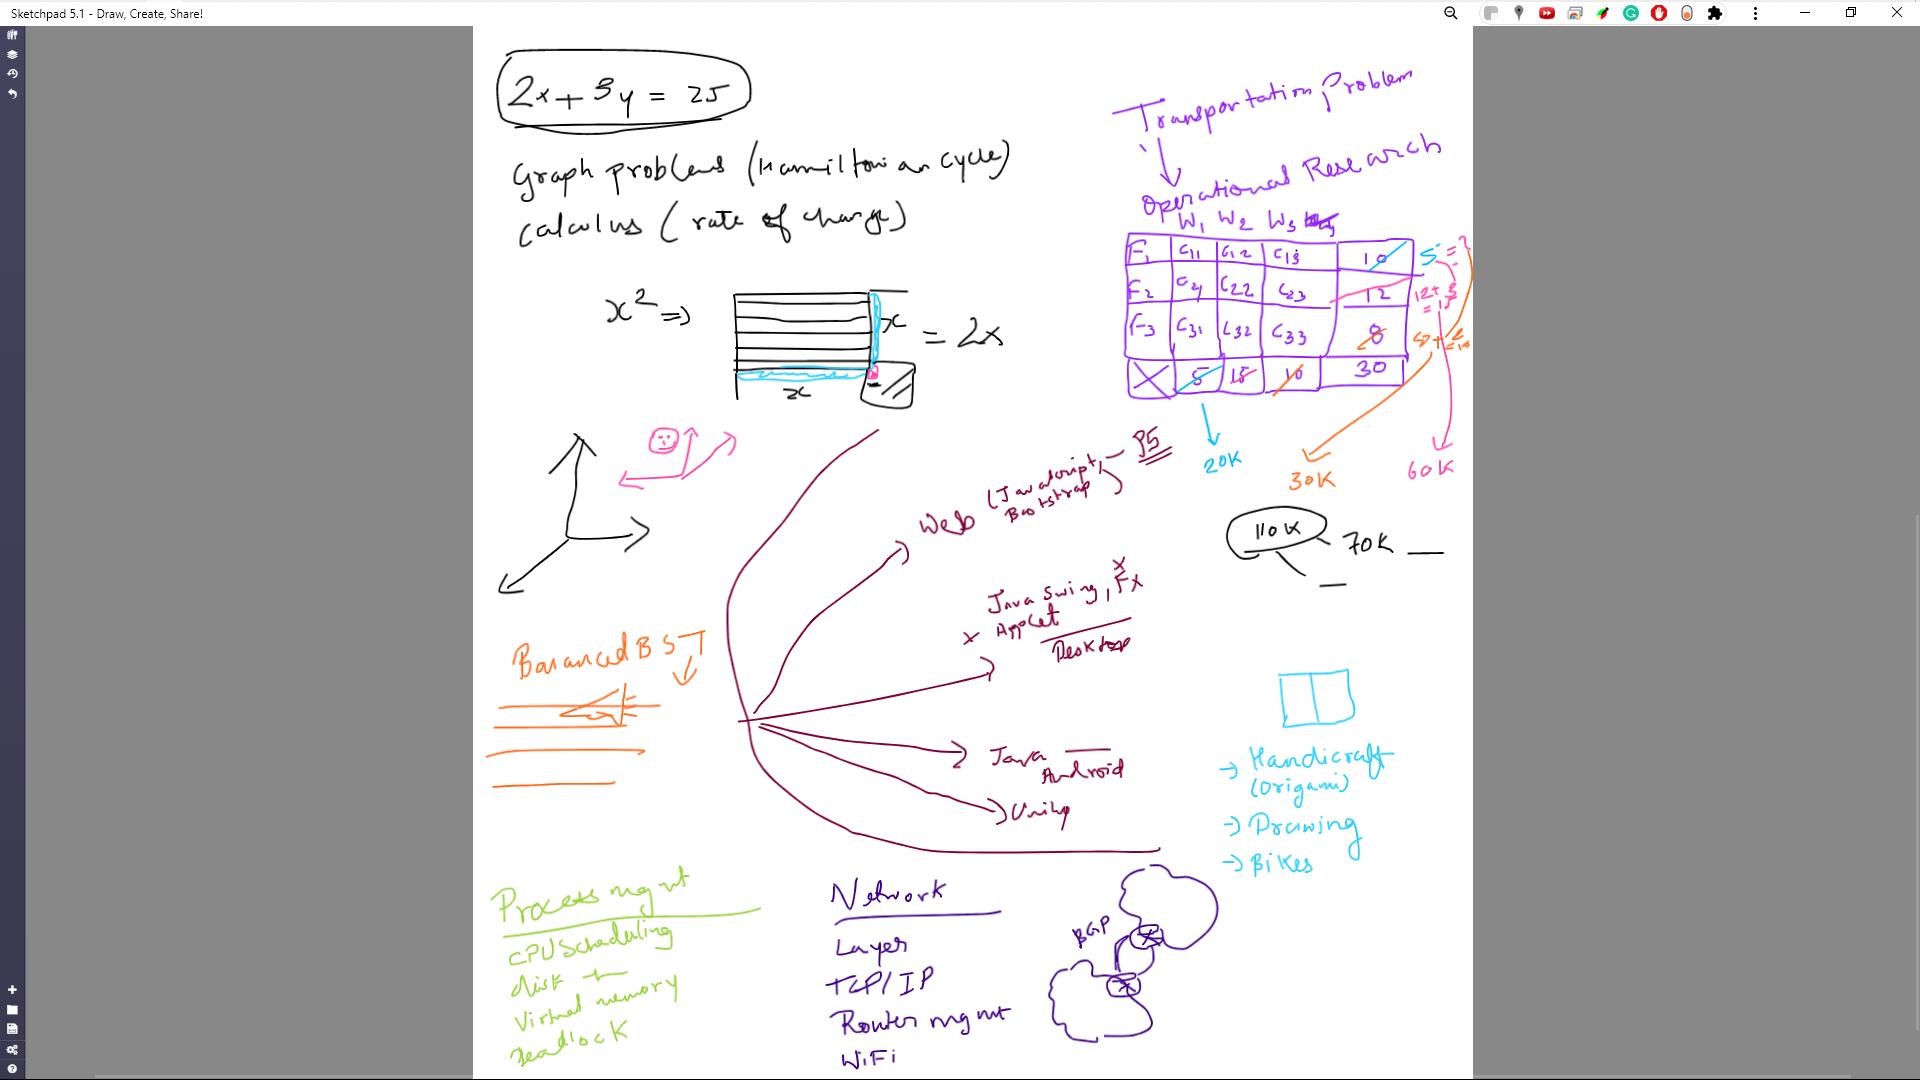 Sketchpad 5.1 - Draw, Create, Share!
2x + 3y = 25
Graph problems (Hamiltonian cycle)
Calculus (rate of change)
x² =>
x
x
= 2x
Transportation Problem
Operational Research
W1 W2 W3
F1 C11 C12 C13 10 5
F2 C21 C22 C23 12 12+3
= 15
F3 C31 C32 C33 8
5 15 10 30
20K
30K
60K
110K
70K
Web (Javascript,
Bootstrap)
P5
Java Swing, Fx
Applet
Desktop
Java
Android
Unity
Bananced BST
Handicraft
(Origami)
Drawing
Bikes
Process mgmt
CPU Scheduling
disk
Virtual memory
Deadlock
Network
Layer
TCP/IP
Router mgmt
WiFi
BGP